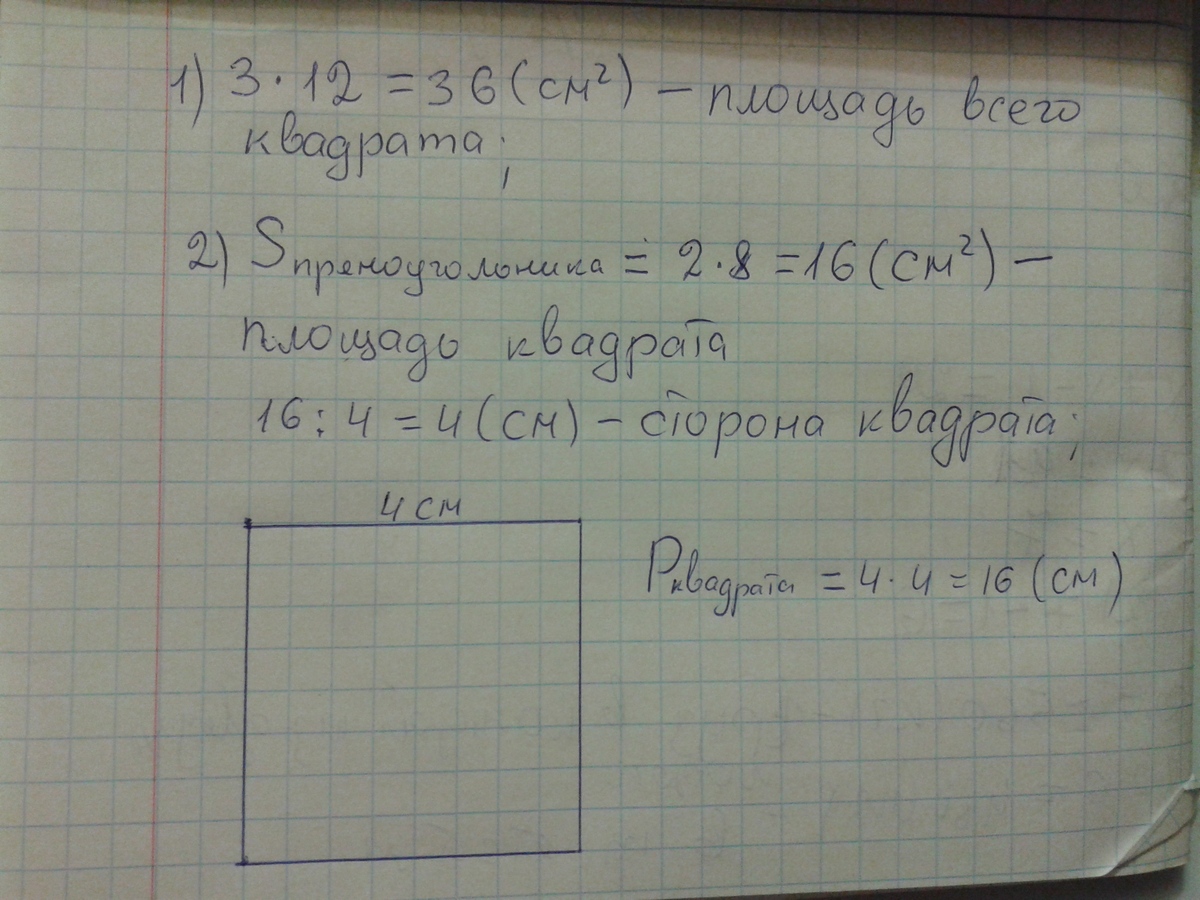 1) 3 · 12 = 36 (см²) – площадь всего
квадрата;
2) Sпрямоугольника = 2 · 8 = 16 (см²) –
площадь квадрата
16 : 4 = 4 (см) – сторона квадрата;
4 см
Pквадрата = 4 · 4 = 16 (см)